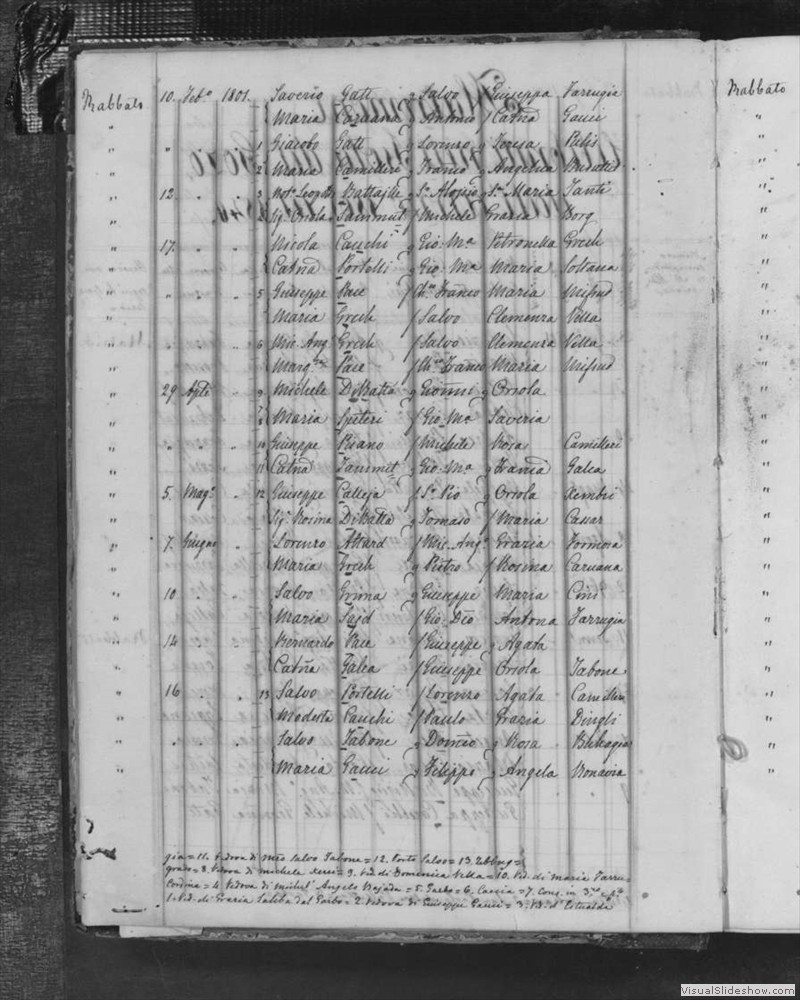 Rabbato 10. Feb.o 1801. Saverio Gatt q Salvo Giuseppa Farrugia
" Maria Caruana q Antonio f Catña Gauci
" " " " 1 Giacobo Gatt q Lorenzo q Teresa
" 2 Maria Camilleri q Franco q Angelica
" 12 " " 3 Not. Leopdo Battaglie q Sr Aloisio q Sra Maria Tanti
" Sig.a Oriola Sammut f Michele Grazia Borg
" 17. " " Nicola Cauchi q Gio. Ma Petronella Grech
" Catña Portelli q Gio. Ma Maria Soltana
" " " " 5 Giuseppe Pace f Ch.co Franco Maria Mifsud
" Maria Grech f Salvo Clemenza Vella
" " " " 6 Mic. Ang. Grech f Salvo Clemenza Vella
" Marg.ta Pace f Ch.co Franco Maria Mifsud
" 29 Aple " 9 Michele DiBatta q Gioñni q Oriola
" Maria Spiteri f Gio Ma Saveria
" " " " 10 Giuseppe Pisano f Michele Rosa Camilleri
" 11 Catña Sammut q Gio. Ma q Franca Galea
" 5. Mag.o " 12 Giuseppe Calleja f Sr Pio q Oriola Xembri
" Sig.a Rosina DiBatta q Tomaso f Maria Cassar
" 7. Giugno " Lorenzo Attard f Mic. Ang.o Grazia Formosa
" Maria Grech q Pietro f Rosina Caruana
" 10 " " Salvo Grima q Giuseppe Maria Cini
" Maria Sajd f Gio. Dio Antona Farrugia
" 14 " " Bernardo Pace f Giuseppe q Agata
" Catña Galea f Giuseppe Oriola Tabone
" 16 " " 13 Salvo Portelli f Lorenzo Agata Camilleri
" Modesta Cauchi f Paulo Grazia Dingli
" " " " Salvo Tabone q Domco q Rosa Buhagiar
" Maria Gauci q Filippo q Angela Bonavia
gia = 11. Vedova di Mro Salvo Tabone = 12. Porto Salvo = 13. Zebbug =
8. Vedova di Michele = 9. Ved. di Domenica Vella = 10. Ved. di Maria Farru=
= 4. Vedova di Michel' Angelo Bajada = 5. Garbo = 6. Caccia = 7. Cons. in 3.zo e 4.to
1. Ved. di Grazia Saliba dal Garbo = 2. Vedova di Giuseppe Gauci = 3. Vo. d'
Rabbato
VisualSlideshow.com